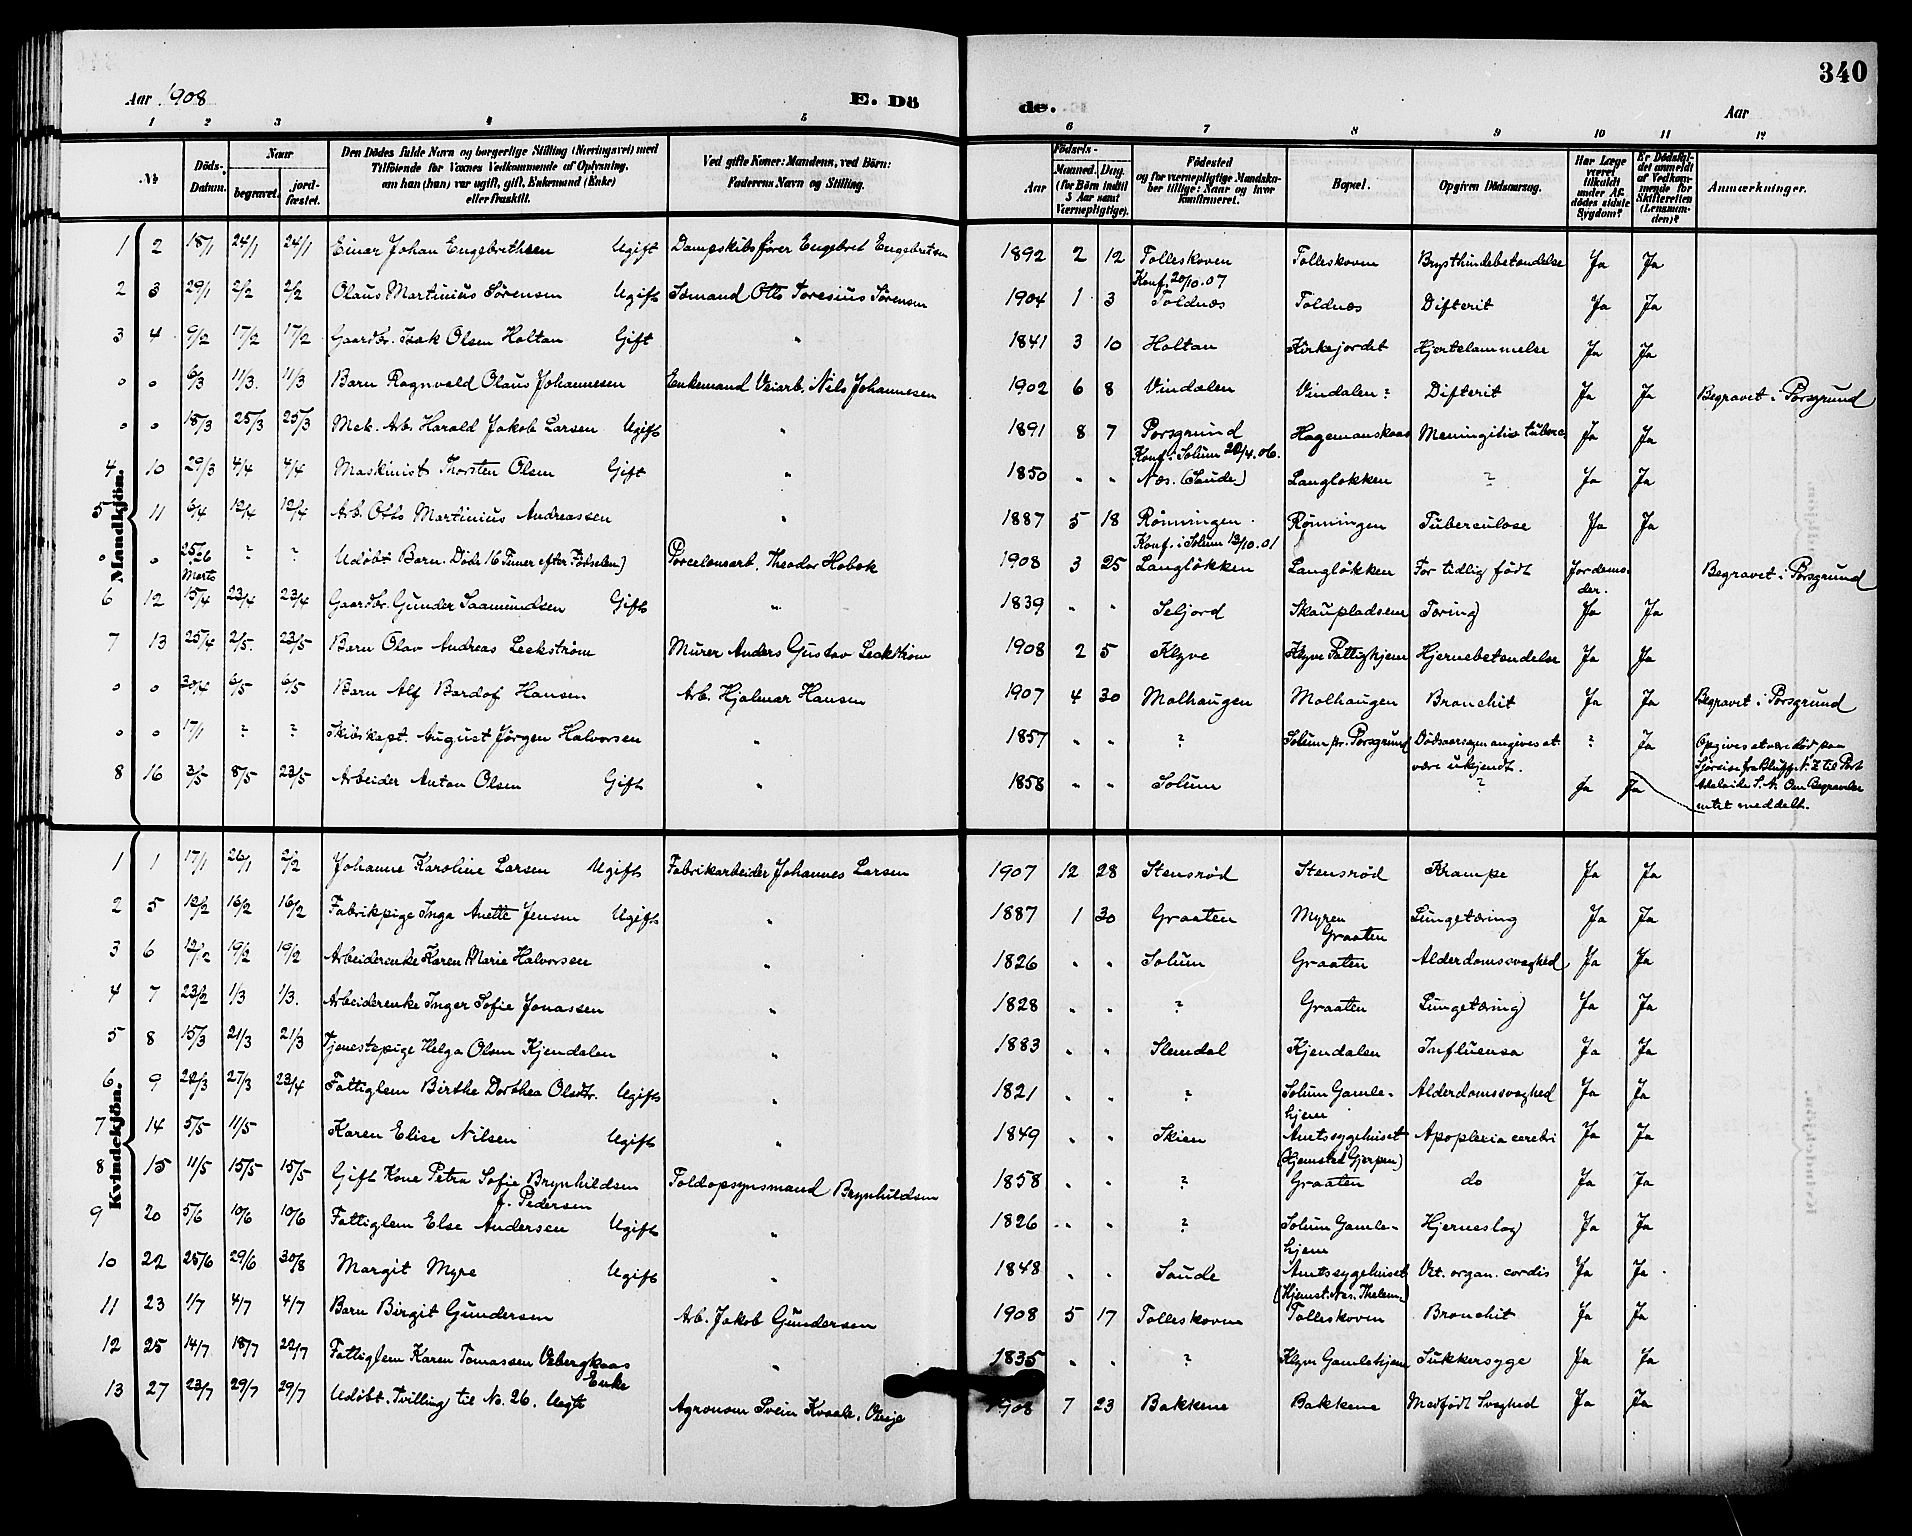 340
Aar 1908 E. Dö de. Aar
1 2 3 4 5 6 7 8 9 10 11 12
№ Döds-Datum. Naar begravet. jordfæstet. Den Dödes fulde Navn og borgerlige Stilling (Næringsvei) med Tilföiende for Voxnes Vedkommende af Oplysning, om han (hun) var ugift, gift, Enkemand (Enke) eller fraskilt. Ved gifte Koner: Mandens, ved Börn: Faderens Navn og Stilling. Födsels- Aar Maaned. Dag. (for Börn indtil 5 Aar samt Værnepligtige). Födested og for værnepligtige Mandskaber tillige: Naar og hvor konfirmeret. Bopæl. Opgiven Dödsaarsag. Har Læge været tilkaldt under Afdödes sidste Sygdom? Er Dödsfaldet anmeldt af Vedkommende for Skifteretten (Lensmanden)? Anmærkninger.
Mandkjön.
1 2 18/1 24/1 24/1 Einar Johan Engebrethsen Ugift Dampskibsfører Engebret Engebretsen 1892 2 12 Tolleskoven Brysthindebetændelse Ja Ja
Konf. 20/10.07
2 3 29/1 2/2 2/2 Olaus Martinius Sørensen Ugift Sømand Otto Toresius Sørensen 1904 1 3 Toldnæs Toldnæs Difterit Ja Ja
3 4 9/2 17/2 17/2 Gaardbr. Isak Olsen Holtan Gift " 1841 3 10 Holtan Kirkejordet Hjertelammelse Ja Ja
0 0 6/3 11/3. 11/3 Barn Ragnvald Olaus Johannesen Enkemand Veiarb. Nils Johannesen 1902 6 8 Vindalen Vindalen? Difterit Ja Ja Begravet i Porsgrund
0 0 18/3 25/3 25/3 Mek. Arb. Harald Jakob Larsen Ugift " 1891 8 7 Porsgrund Hagemanskaas Meningitis tuberc. Ja Ja
Konf. i Solum 22/4.06.
4 10 29/3 4/4 4/4 Maskinist Thorsten Olsen Gift " 1850 " " Næs. (Saude) Langløkken ? Ja Ja
5 11 6/4 12/4 12/4 Arb. Otto Martinius Andreassen " 1887 5 18 Rønningen. Rønningen Tuberculose Ja Ja
Konf. i Solum 13/10.01
0 0 25-26 Marts ? ? Udøbt Barn. Døde 16 Timer efter Fødselen) Porcelænsarb. Theodor Hobæk 1908 3 25 Langløkken Langløkken For tidlig født Jordemoder. Begravet i Porsgrund
6 12 15/4 23/4 23/4 Gaardbr. Gunder Saamundsen Gift " 1839 " " Seljord Skaupladsene Tæring Ja Ja
7 13 25/4 2/5. 23/5 Barn Olav Andreas Leckstrøm Murer Anders Gustav Leckstrøm 1908 2 5 Klyve Klyve Fattighjem Hjernebetændelse Ja Ja
0 0 30/4 6/5 6/5 Barn Alf Bardof Hansen Arb. Hjalmar Hansen 1907 4 30 Molhaugen Molhaugen Bronchit Ja Ja Begravet i Porsgrund
0 0 17/1 ? ? Skibskapt. August Jørgen Halvorsen " 1857 " " ? Solum pr. Porsgrund Dødsaarsagen angives at være ukjendt. ? Ja Opgives at være død paa Sjøreise fra Bluff N. Z til Port Adelaide S. A. Om Begravelse intet meddelt.
8 16 3/5 8/5 23/5 Arbeider Anton Olsen Gift " 1858 " " Solum ? Ja Ja
Kvindekjön.
1 1 17/1 26/1 2/2 Johanne Karoline Larsen Ugift Fabrikarbeider Johannes Larsen 1907 12 28 Stensrød Stensrød Krampe Ja Ja
2 5 12/2 16/2 16/2 Fabrikpige Inga Anette Jensen Ugift " 1887 1 30 Graaten Myren Graaten Lungetæring Ja Ja
3 6 12/2 19/2 19/2 Arbeiderenke Karen Marie Halvorsen " 1826 " " Solum Graaten Alderdomssvaghed Ja Ja
4 7 23/2 1/3 1/3. Arbeiderenke Inger Sofie Jonassen " 1828 " " ? Graaten Lungetæring Ja Ja
5 8 15/3 21/3 21/3 Tjenestepige Helga Olsen Kjendalen " 1883 " " Slemdal Kjendalen Influensa Ja Ja
6 9 22/3 27/3 23/4 Fattiglem Birthe Dorthea Olsdtr. Ugift " 1821 " " ? Solum Gamlehjem Alderdomssvaghed Ja Ja
7 14 5/5 11/5 Karen Elise Nilsen Ugift " 1849 " " Skien Amtssygehuset (Hjemsted Gjerpen) Apoplexia cerebi Ja Ja
8 15 11/5 15/5 15/5 Gift Kone Petra Sofie Brynhildsen f. Pedersen Toldopsynsmand Brynhildsen 1858 " " ? Graaten do Ja Ja
9 20 5/6 10/6 10/6 Fattiglem Else Andersen Ugift " 1826 " " ? Solum Gamlehjem Hjerneslag Ja Ja
10 22 25/6 29/6 30/8 Margit Myre Ugift " 1848 " " Saude Amtssygehuset (Hjemst. Næs. Thelem.) Vit. organ. cordis Ja Ja
11 23 1/7 4/7 4/7 Barn Birgit Gundersen Arb. Jakob Gundersen 1908 5 17 Tolleskoven Tolleskoven Bronchit Ja Ja
12 25 14/7 18/7 22/7 Fattiglem Karen Tomassen Vebergkaas Enke " 1835 " " ? Klyve Gamlehjem Sukkersyge Ja Ja
13 27 23/7 29/7 29/7 Udøbt. Tvilling til No. 26. Ugift Agronom Svein Kvaale, 1908 7 23 Bakkene Bakkene Medfødt Svaghed Ja Ja